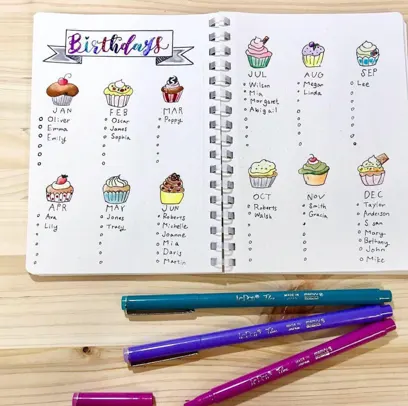 Birthdays
JAN
Oliver
Emma
Emily
FEB
Oscar
James
Sophia
MAR
Poppy
APR
Ava
Lily
MAY
Jones
Tracy
JUN
Roberts
Michelle
Joanne
Mia
Davis
Martin
JUL
Wilson
Mia
Margaret
Abigail
AUG
Megan
Linda
SEP
Lee
OCT
Roberts
Walsh
NOV
Smith
Gracia
DEC
Taylor
Anderson
Susan
Mary
Bethany
John
Mike